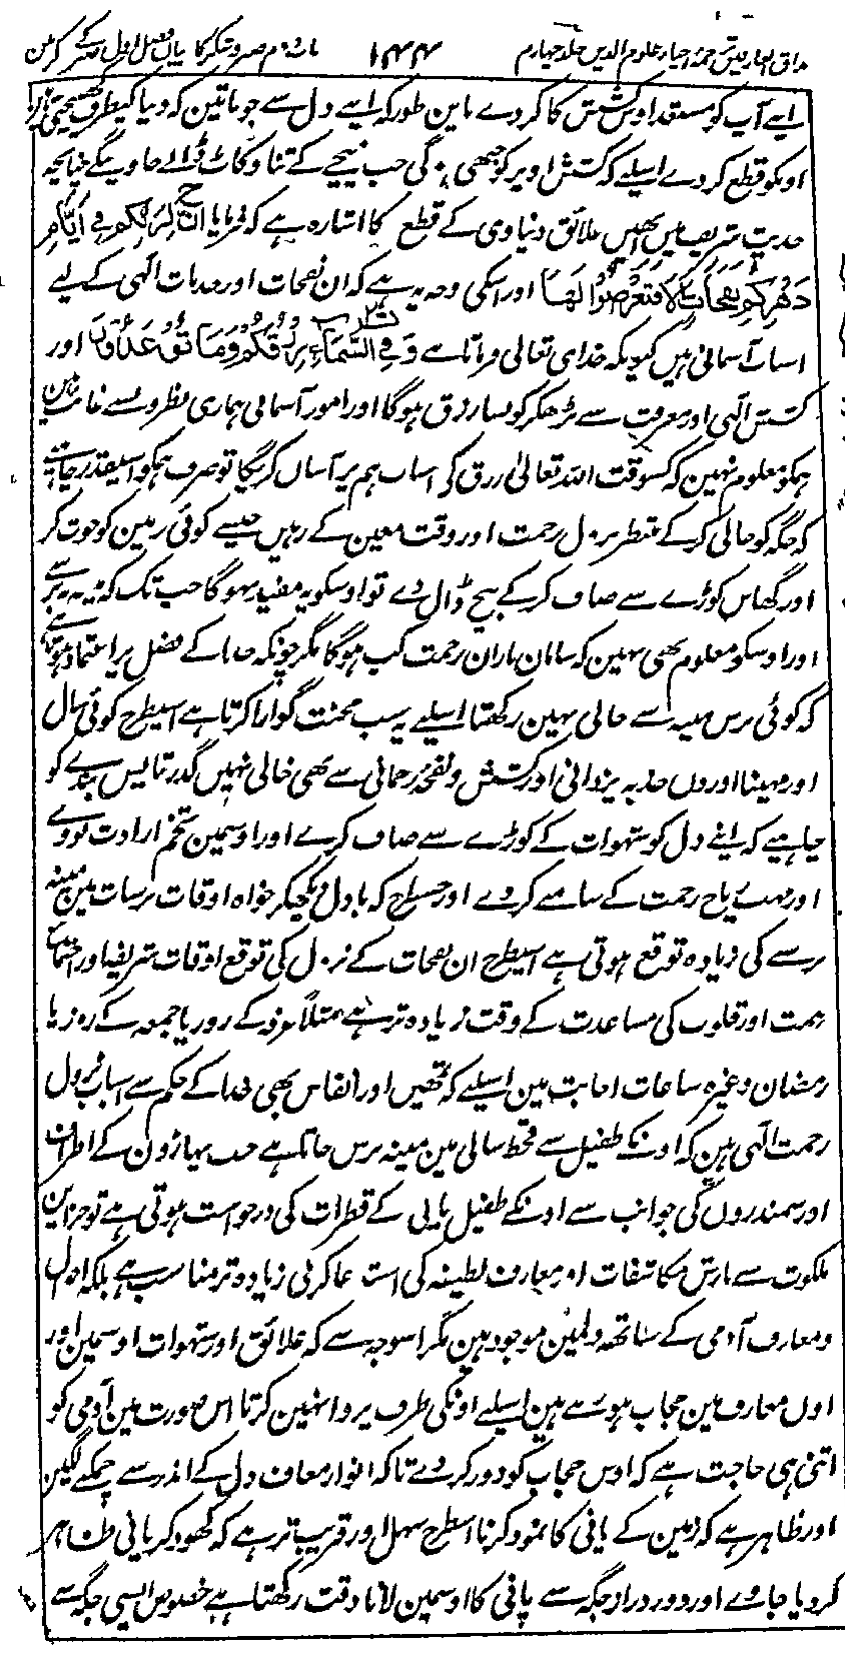 مذاق العارفین ترجمہ احیاء علوم الدین جلد چہارم ۱۴۴ باب دوم صبر و شکر کا بیان فصل اول صبر کے ذکر مین
اپنے آپ کو مستعد اوس کشش کا کر دے باین طور کہ اپنے دل سے جو باتین کہ دنیا کیطرف کھینچتی ہین
اونکو قطع کر دے اسلیے کہ کشش اوپر کو جبھی ہوگی جب نیچے کے تناؤ کاٹ ڈالے جاوینگے چنانچہ
حدیث شریف میں انھیں علائق دنیاوی کے قطع کا اشارہ ہے کہ فرمایا ان لربکم فی ایام
دھرکم نفحات الا فتعرضوا لھا اور اسکی وجہ یہ ہے کہ ان نفحات اور جذبات الٰہی کے لیے
اسباب آسمانی ہیں کیونکہ خدای تعالی فرماتا ہے وفی السماء رزقکم وما توعدون اور
کشش الٰہی اور معرفت سے بڑھکر کونسا رزق ہوگا اور امور آسمانی ہماری نظروں سے غائب ہین
ہمکو معلوم نہین کہ کسوقت اللہ تعالیٰ رزق کی اسباب ہم پر آسان کریگا تو صرف ہمکو اسیقدر چاہیے
کہ جگہ کو خالی کر کے منتظر نزول رحمت اور وقت معین کے رہیں جیسے کوئی زمین کو جوت کر
اور گھاس کوڑے سے صاف کر کے بیج ڈال دے تو اوسکو یہ مفید نہوگا جب تک کہ مینہ نہ برسے
اور اوسکو معلوم بھی نہین کہ سامان باران رحمت کب ہوگا مگر چونکہ خدا کے فضل پر اعتماد ہوتا ہے
کہ کوئی برس مینہ سے خالی نہین رکھتا اسلیے یہ سب محنت گوارا کرتا ہے اسیطرح کوئی سال
اور مہینا اور دن جذبہ یزدانی اور کشش و نفحہ رحمانی سے بھی خالی نہیں گذرتا پس بندے کو
چاہیے کہ اپنے دل کو شہوات کے کوڑے سے صاف کرے اور اوسمین تخم ارادت بووے
اور ریاح رحمت کے سامنے کر دے اور جسطرح کہ بادل دیکھکر خواہ اوقات برسات مین مینہ
برسنے کی زیادہ توقع ہوتی ہے اسیطرح ان نفحات کے نزول کی توقع اوقات شریف اور اجتماع
ہمت اور قلوب کی مساعدت کے وقت زیادہ تر ہے مثلاً عرفہ کے روز یا جمعہ کے روز یا
رمضان وغیرہ ساعات اجابت مین اسلیے کہ ہمتیں اور انفاس بھی خدا کے حکم سے اسباب نزول
رحمت الٰہی ہین کہ اونکے طفیل سے قحط سالی مین مینہ برس جاتا ہے جب پہاڑون کے اطراف
اور سمندروں کی جوانب سے اونکے طفیل پانی کے قطرات کی درخواست ہوتی ہے تو خزاین
ملکوت سے بارش مکاشفات اور معارف لطیفہ کی استدعا کرنی زیادہ تر مناسب ہے بلکہ احوال
و معارف آدمی کے ساتھ دلمین موجود ہین مگر اسوجہ سے کہ علائق اور شہوات اوسمین اور
اون معارف مین حجاب ہو رہے ہین اسلیے اونکی طرف پروا نہین کرتا اس صورت مین آدمی کو
اتنی ہی حاجت ہے کہ اوس حجاب کو دور کر دے تا کہ انوار معارف دل کے اندر سے چمکنے لگین
اور ظاہر ہے کہ زمین کے پانی کا نمود کرنا اسطرح سہل اور قریب تر ہے کہ کھود کر پانی ظاہر
کر دیا جاوے اور دور دراز جگہ سے پانی کا اوسمین لانا دقت رکھتا ہے خصوص ایسی جگہ سے